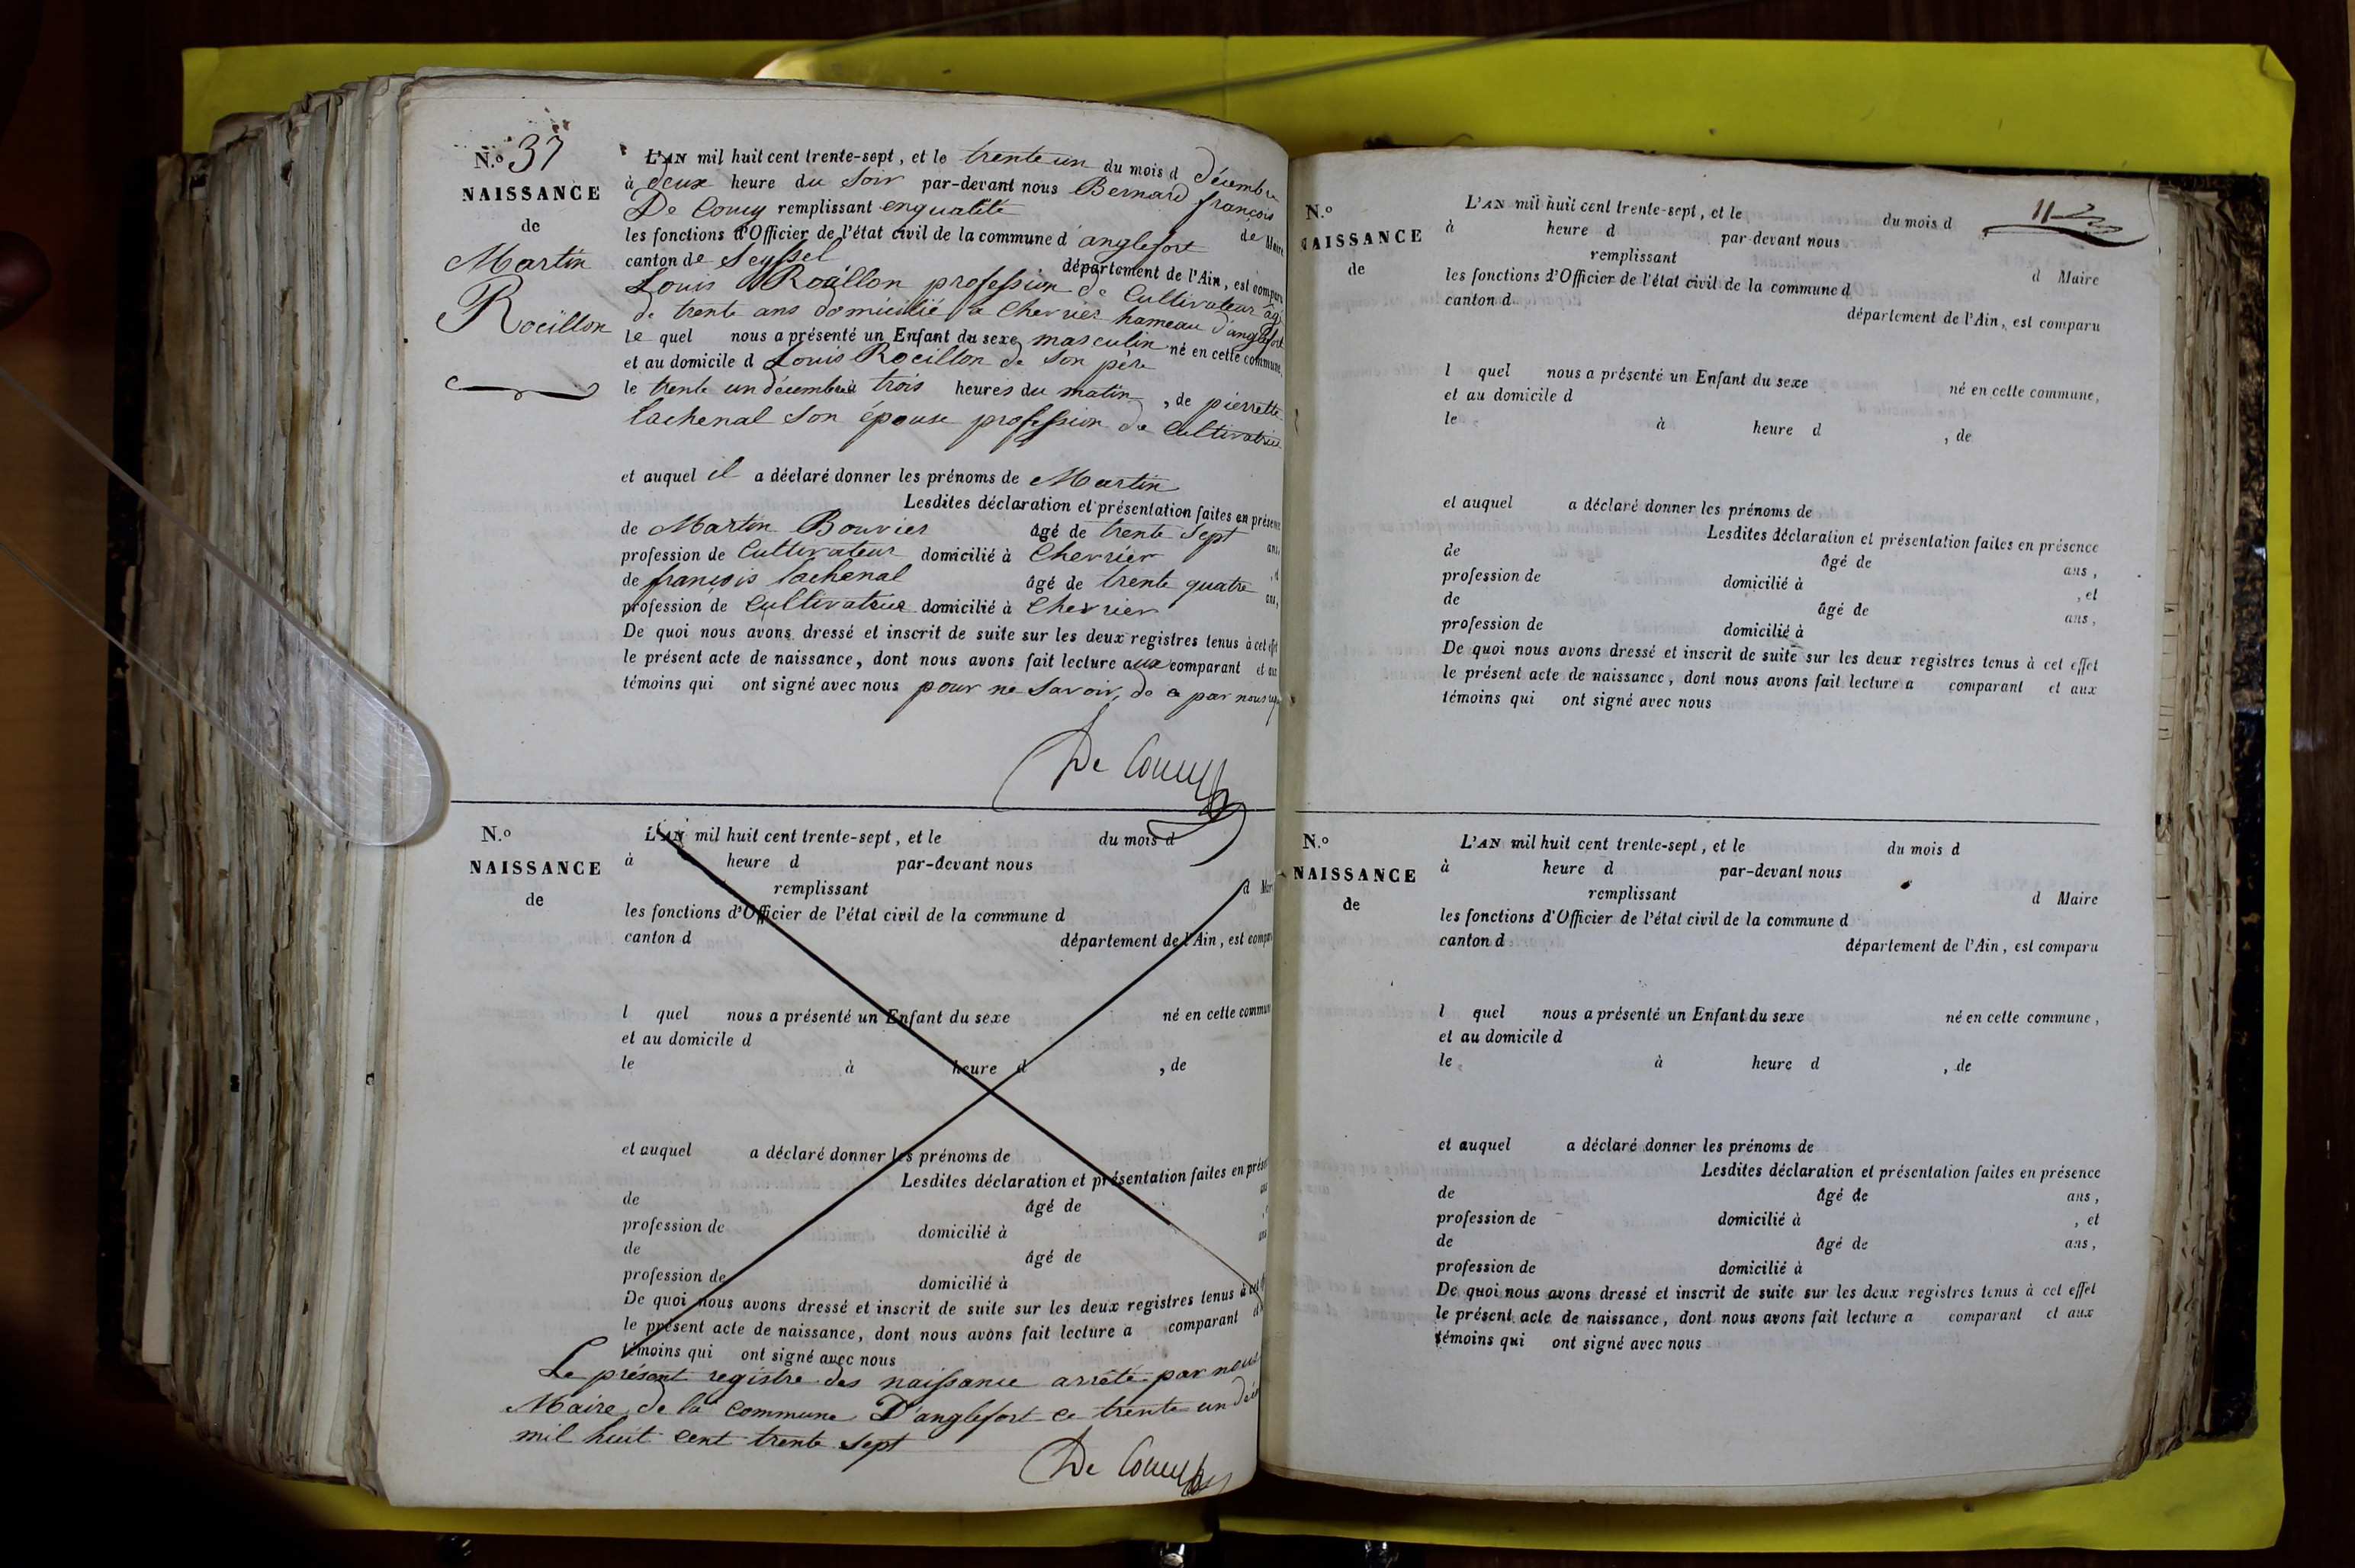 N.o 37
NAISSANCE
de
Martin
Rocillon
L'AN mil huit cent trente-sept, et le trente un du mois d décembre
à deux heure du soir par-devant nous Bernard françois
De Coucy remplissant en qualité de Maire
les fonctions d'Officier de l'état civil de la commune d'anglefort
canton de Seyssel département de l'Ain, est comparu
Louis Rocillon profession de Cultivateur âgé
de trente ans domicilié à Chevrier hameau d'anglefort
le quel nous a présenté un Enfant du sexe masculin né en cette commune,
et au domicile d Louis Rocillon de Son père
le trente un décembre à trois heures du matin, de pierrette
lachenal Son épouse profession de Cultivatrice
et auquel il a déclaré donner les prénoms de Martin
Lesdites déclaration et présentation faites en présence
de Martin Bouvier âgé de trente Sept ans,
profession de Cultivateur domicilié à Chevrier, et
de françois lachenal âgé de trente quatre ans,
profession de Cultivateur domicilié à Chevrier
De quoi nous avons dressé et inscrit de suite sur les deux registres tenus à cet effet
le présent acte de naissance, dont nous avons fait lecture aux comparant et aux
témoins qui ont signé avec nous pour ne Savoir, de ce par nous
De Coucy
N.o
NAISSANCE
de
L'AN mil huit cent trente-sept, et le du mois d
à heure d par-devant nous
remplissant d Maire
les fonctions d'Officier de l'état civil de la commune d
canton d département de l'Ain, est comparu
l quel nous a présenté un Enfant du sexe né en cette commune
et au domicile d
le à heure d , de
et auquel a déclaré donner les prénoms de
Lesdites déclaration et présentation faites en présence
de âgé de ans
profession de domicilié à , et
de âgé de ans
profession de domicilié à
De quoi nous avons dressé et inscrit de suite sur les deux registres tenus à cet effet
le présent acte de naissance, dont nous avons fait lecture a comparant et
témoins qui ont signé avec nous
Le présent registre des naissance arrêté par nous
Maire de la Commune D'anglefort ce trente un déc
mil huit cent trente Sept
De Coucy
11
N.o
NAISSANCE
de
L'AN mil huit cent trente-sept, et le du mois d
à heure d par-devant nous
remplissant d Maire
les fonctions d'Officier de l'état civil de la commune d
canton d département de l'Ain, est comparu
l quel nous a présenté un Enfant du sexe né en cette commune,
et au domicile d
le à heure d , de
et auquel a déclaré donner les prénoms de
Lesdites déclaration et présentation faites en présence
de âgé de ans,
profession de domicilié à , et
de âgé de ans,
profession de domicilié à
De quoi nous avons dressé et inscrit de suite sur les deux registres tenus à cet effet
le présent acte de naissance, dont nous avons fait lecture a comparant et aux
témoins qui ont signé avec nous
N.o
NAISSANCE
de
L'AN mil huit cent trente-sept, et le du mois d
à heure d par-devant nous
remplissant d Maire
les fonctions d'Officier de l'état civil de la commune d
canton d département de l'Ain, est comparu
l quel nous a présenté un Enfant du sexe né en cette commune,
et au domicile d
le à heure d , de
et auquel a déclaré donner les prénoms de
Lesdites déclaration et présentation faites en présence
de âgé de ans,
profession de domicilié à , et
de âgé de ans,
profession de domicilié à
De quoi nous avons dressé et inscrit de suite sur les deux registres tenus à cet effet
le présent acte de naissance, dont nous avons fait lecture a comparant et aux
témoins qui ont signé avec nous